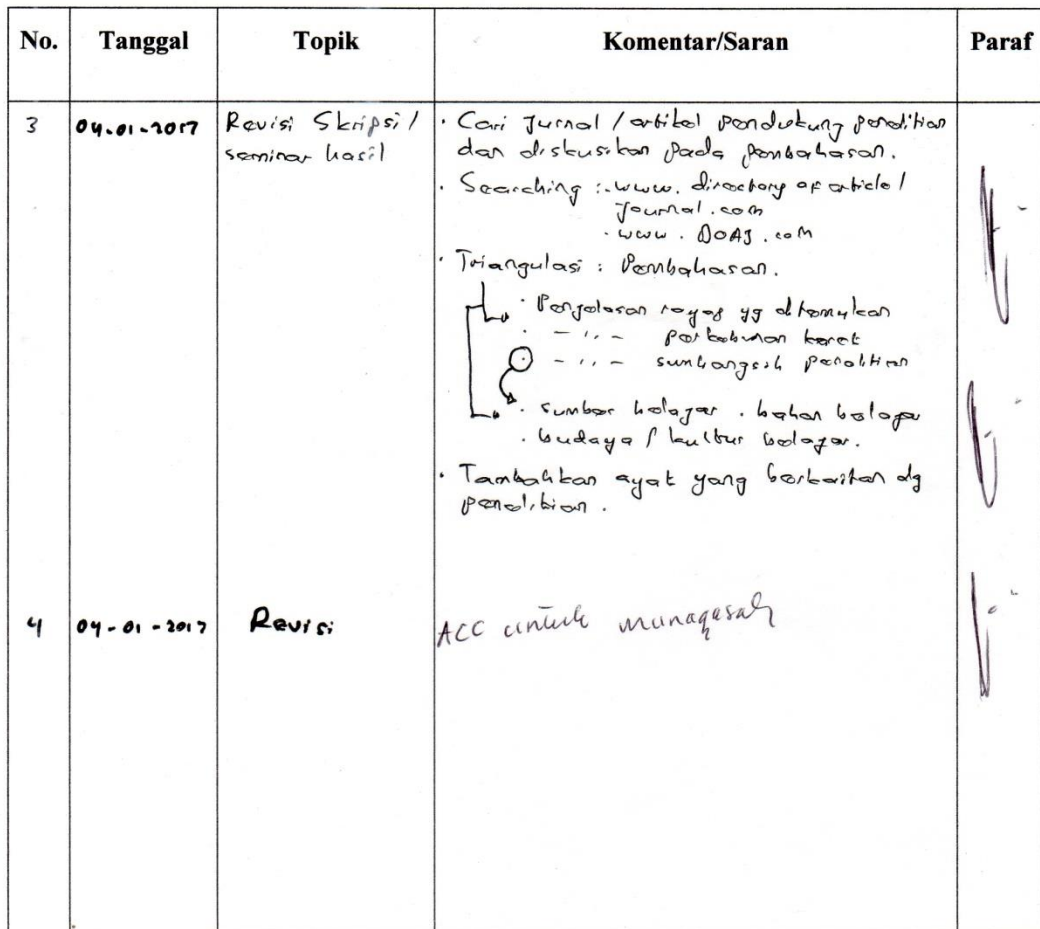 No. Tanggal Topik Komentar/Saran Paraf
3 04-01-2017 Revisi Skripsi / seminar hasil
· Cari Jurnal / artikel pendukung penelitian
dan diskusikan pada pembahasan.
· Searching : · www. directory of article /
Journal . com
· www . DOAJ . com
· Triangulasi : Pembahasan.
· Penjelasan rayap yg ditemukan
· – ,, – perkebunan karet
– ,, – sumbangsih penelitian
· sumber belajar . bahan belajar
· budaya / kultur belajar.
· Tambahkan ayat yang berkaitan dg
penelitian .
4 04 - 01 - 2017 Revisi ACC untuk munaqasah